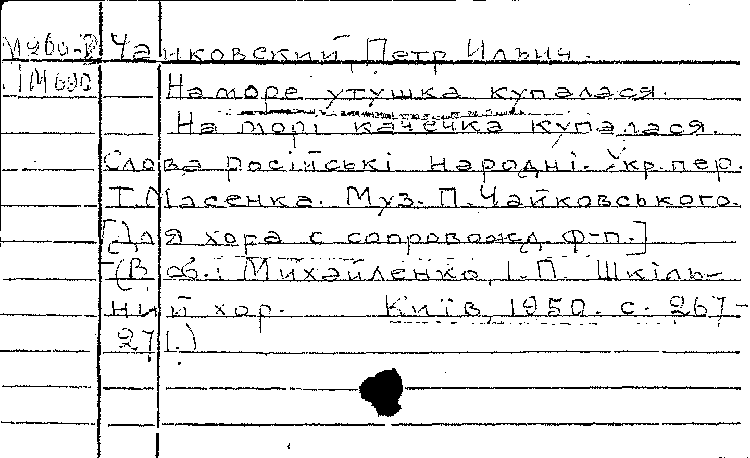 Чайковский, Петр Ильич.
На море утушка купалася.
На морі качечка купалася.
Слова російські народні. Укр. пер.
Т. Масенка. Муз. П. Чайковського.
[Для хора с сопровожд. ф-п.]
(В сб.: Михайленко, І. П. Шкіль-
ний хор. Київ, 1950. с. 267-
271.)